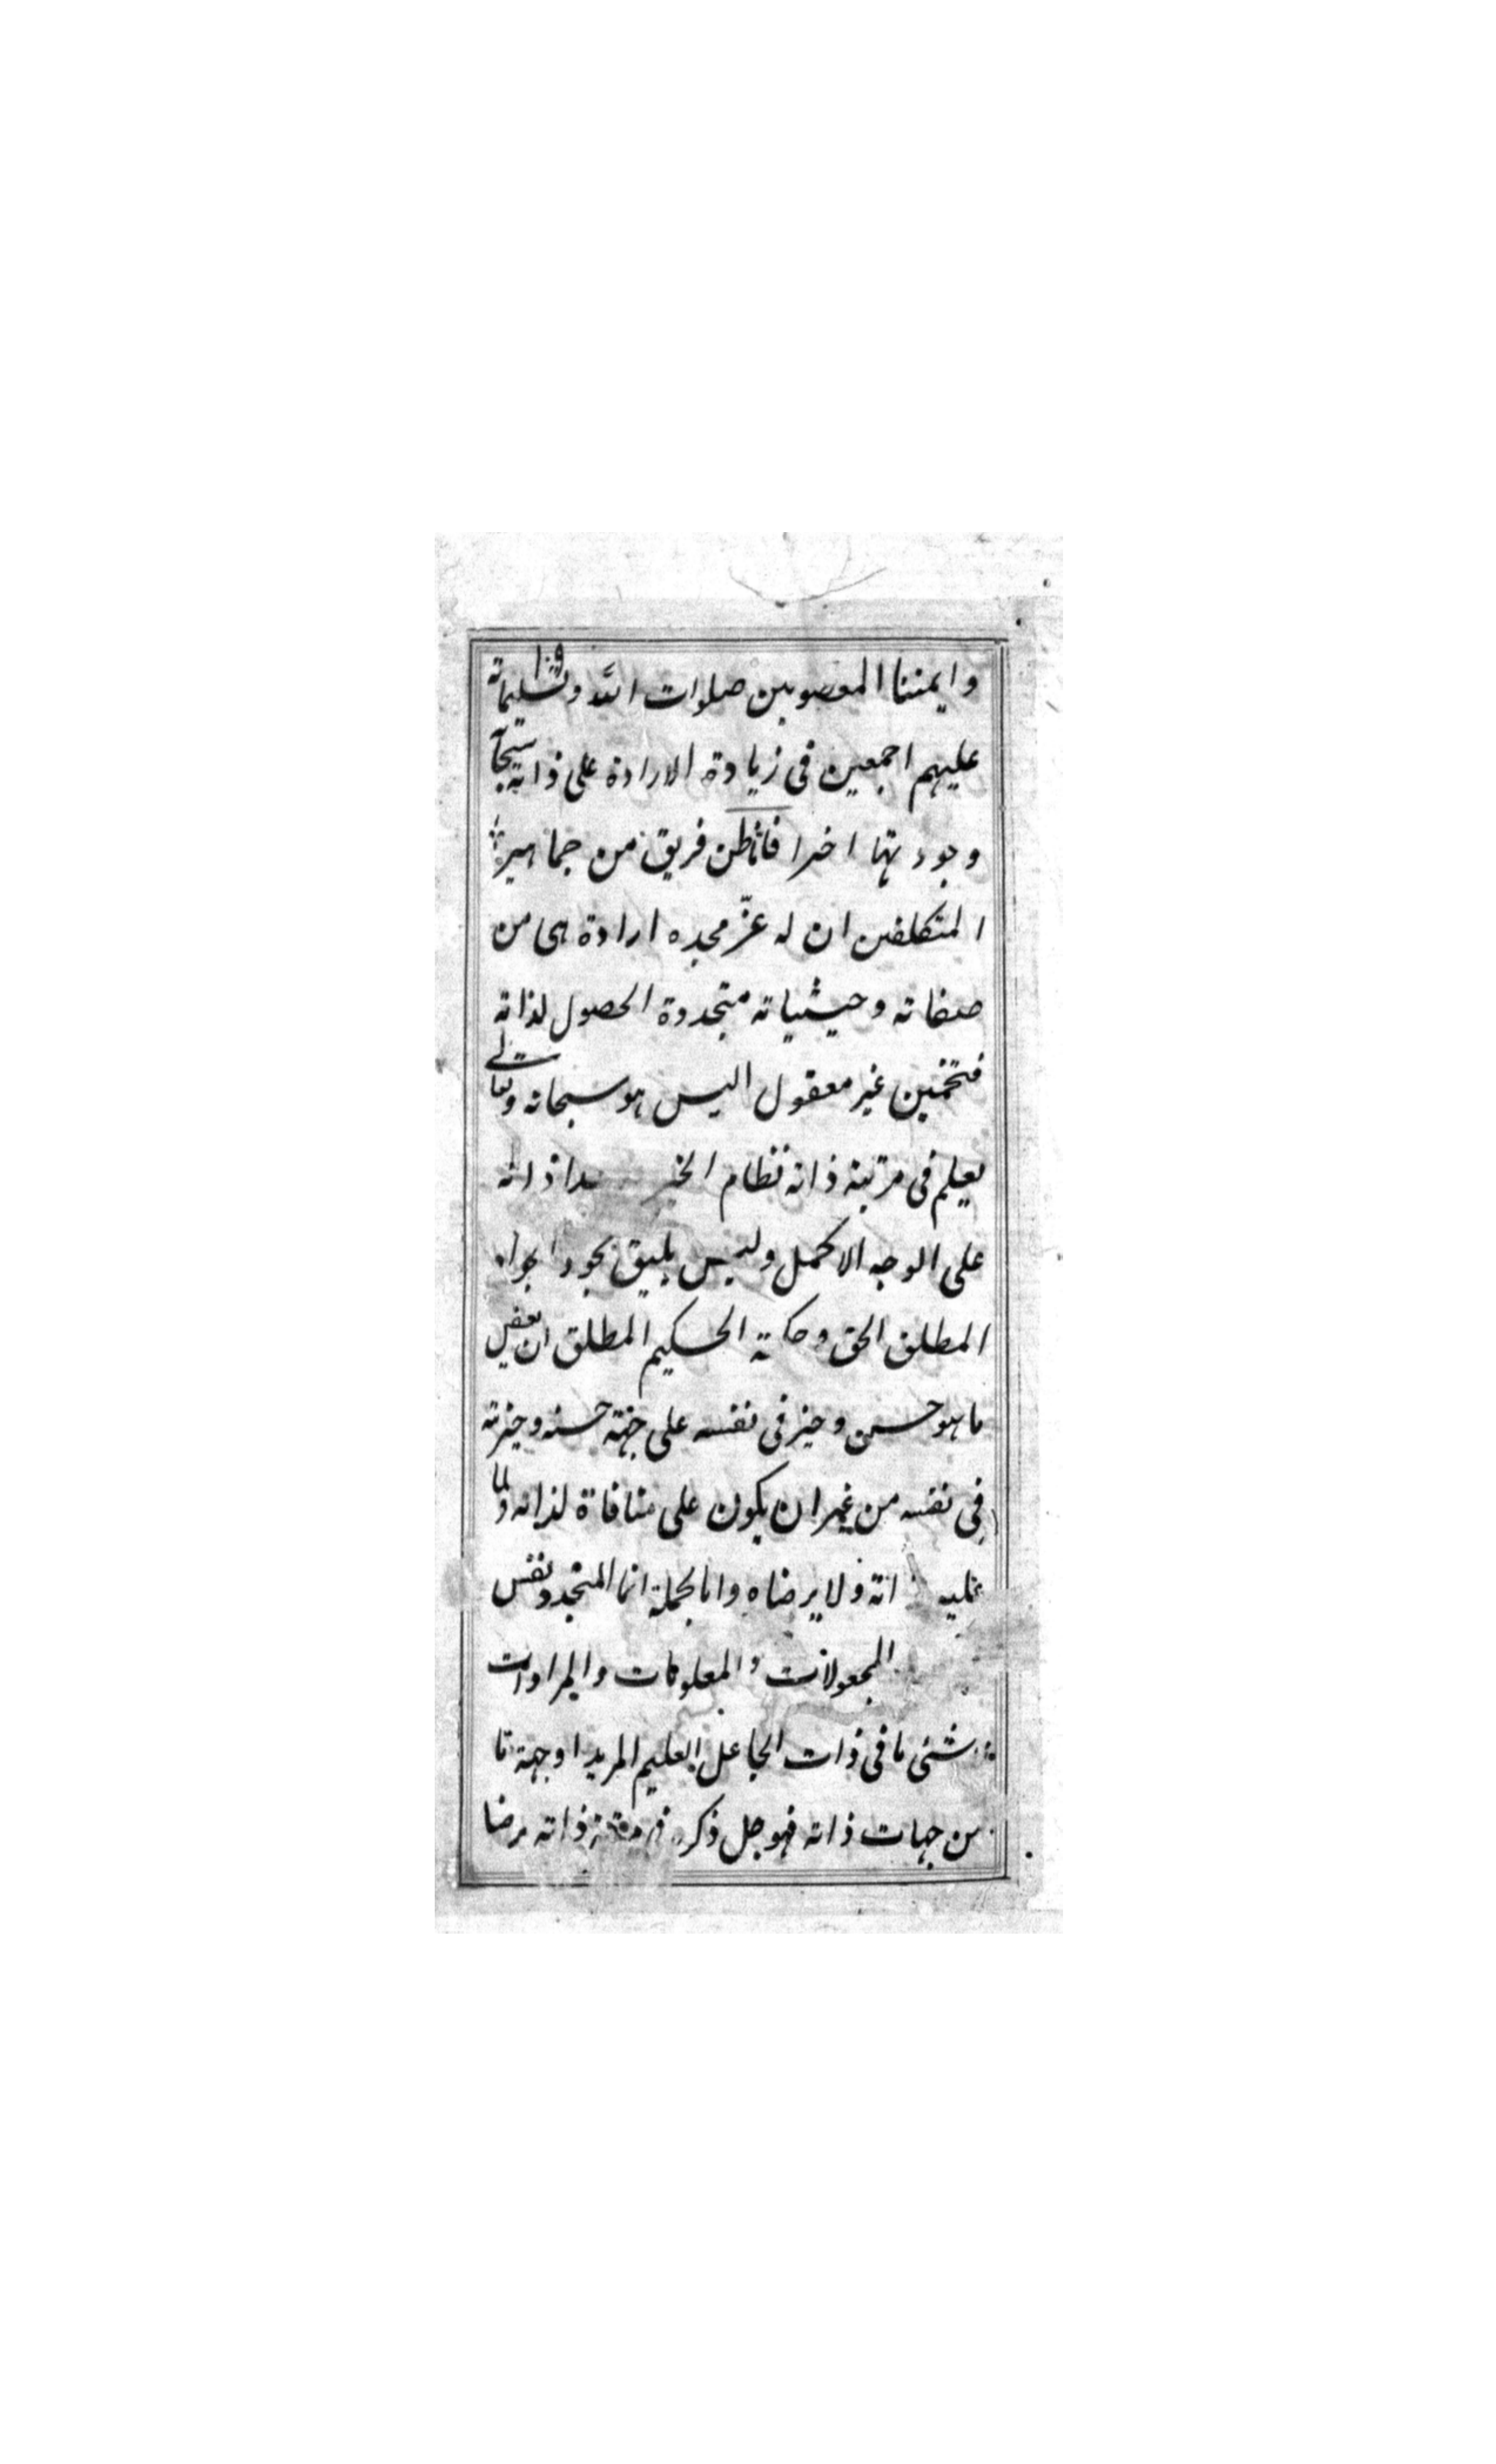 وايمتنا المعصومين صلوات الله وتسليماته
عليهم اجمعين فى زيادة الارادة على ذاته سبحانه
وجودتها اخرا فاما ظن فريق من جماهير
المتكلفين ان له عزّ مجده ارادة هى من
صفاته وحيثياته متجددة الحصول لذاته
فتخمين غير معقول اليس هو سبحانه وتعالى
يعلم فى مرتبة ذاته نظام الخير ذاته
على الوجه الاكمل وليس يليق بجود الجواد
المطلق الحق وحكمة الحكيم المطلق ان يفيض
ما هو حسن وخير فى نفسه على جهة حسنه وخيريته
فى نفسه من غير ان يكون على منافاة لذاته ولما
عليه ذاته ولا يرضاه وبالجملة انما المتجدد نفس
المجعولات والمعلومات والمرادات
شئ ما فى ذات الجاعل العليم المريد او جهة ما
من جهات ذاته فهو جل ذكره فى مرتبة ذاته رضا